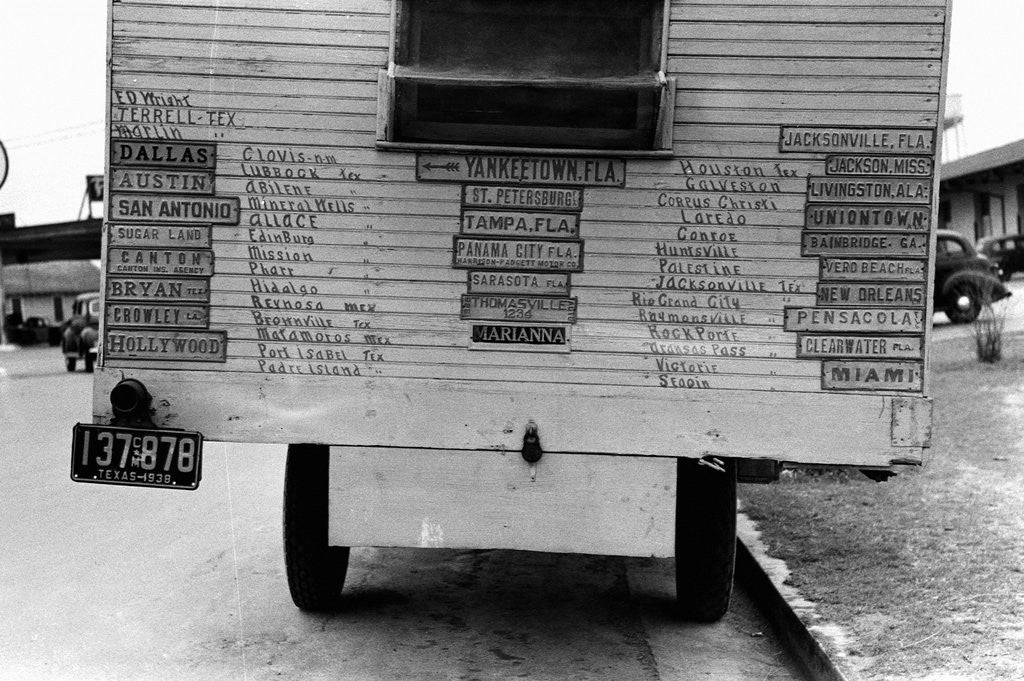 ED Wright
TERRELL-TEX
Marlin "
DALLAS
AUSTIN
SAN ANTONIO
SUGAR LAND
CANTON
CANTON INS. AGENCY
BRYAN TEX.
CROWLEY LA.
HOLLYWOOD
Clovis-n-m
LUBBOCK Tex
aBilene "
Mineral Wells "
allACE "
EdinBurg "
Mission "
Pharr "
Hidalgo "
Reynosa mex
Brownville Tex
Matamoros mex
Port IsaBel Tex
Padre Island "
YANKEETOWN, FLA.
ST. PETERSBURG
TAMPA, FLA.
PANAMA CITY FLA.
HARRISON-PADGETT MOTOR CO.
SARASOTA, FLA.
THOMASVILLE
1234
MARIANNA
Houston Tex
Galveston "
Corpus Christi "
Laredo "
Conroe "
Huntsville "
Palestine "
Jacksonville Tex
Rio Grand City "
Raymonsville "
Rock Porte "
aransas Pass "
Victorie "
Segoin "
JACKSONVILLE, FLA.
JACKSON, MISS.
LIVINGSTON, ALA.
UNIONTOWN
BAINBRIDGE, GA.
VERO BEACH FLA.
NEW ORLEANS
PENSACOLA
CLEARWATER FLA.
MIAMI
137 C&M 878
TEXAS-1938